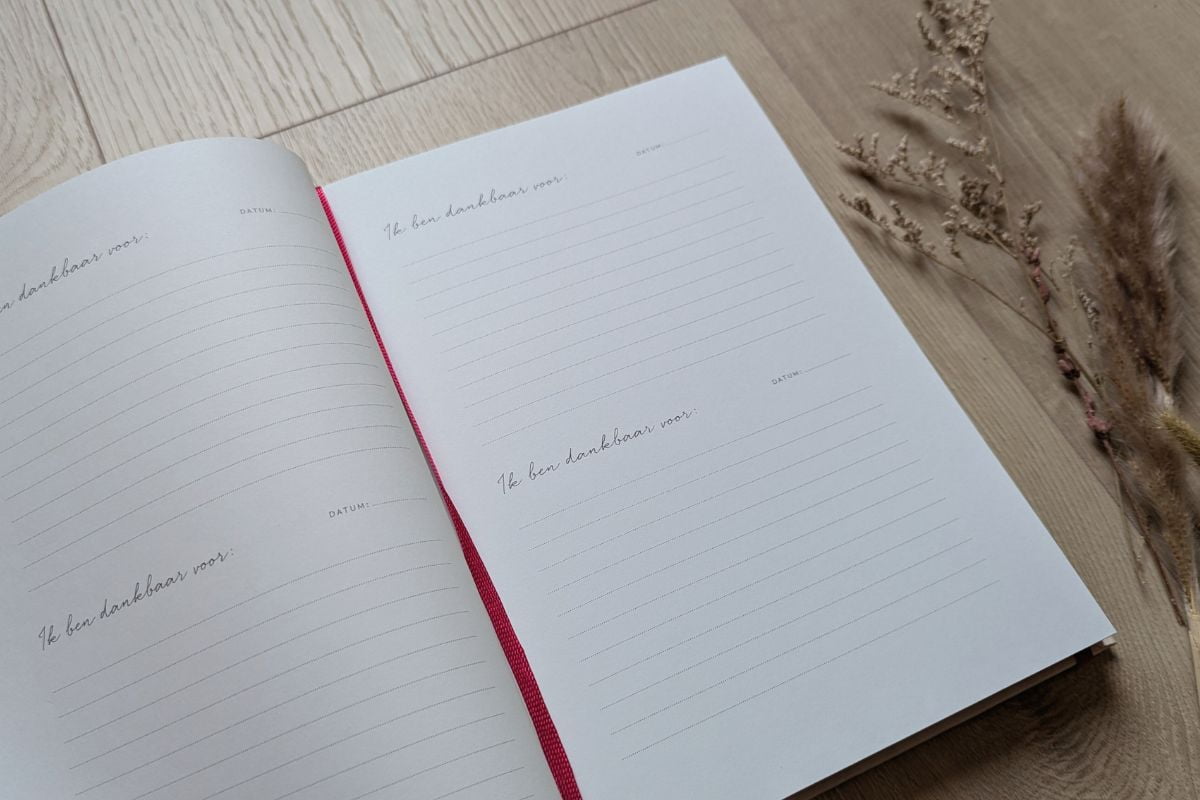 DATUM:
en dankbaar voor:
DATUM:
Ik ben dankbaar voor:
DATUM
Ik ben dankbaar voor:
DATUM:
Ik ben dankbaar voor: